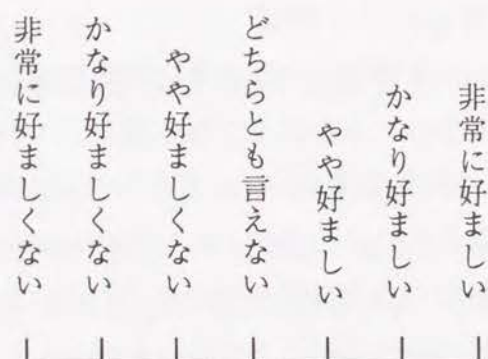 非常に好ましい
かなり好ましい
やや好ましい
どちらとも言えない
やや好ましくない
かなり好ましくない
非常に好ましくない